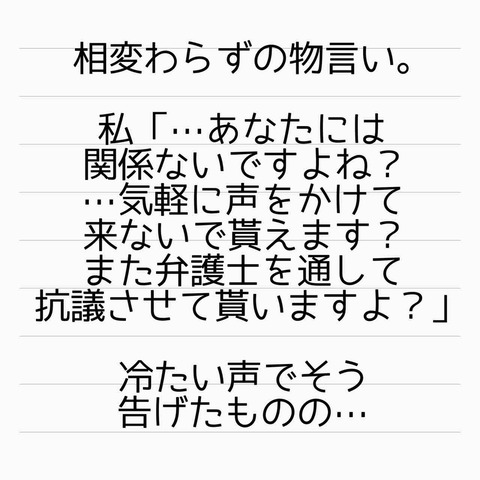 相変わらずの物言い。
私「…あなたには
関係ないですよね？
…気軽に声をかけて
来ないで貰えます？
また弁護士を通して
抗議させて貰いますよ？」
冷たい声でそう
告げたものの…